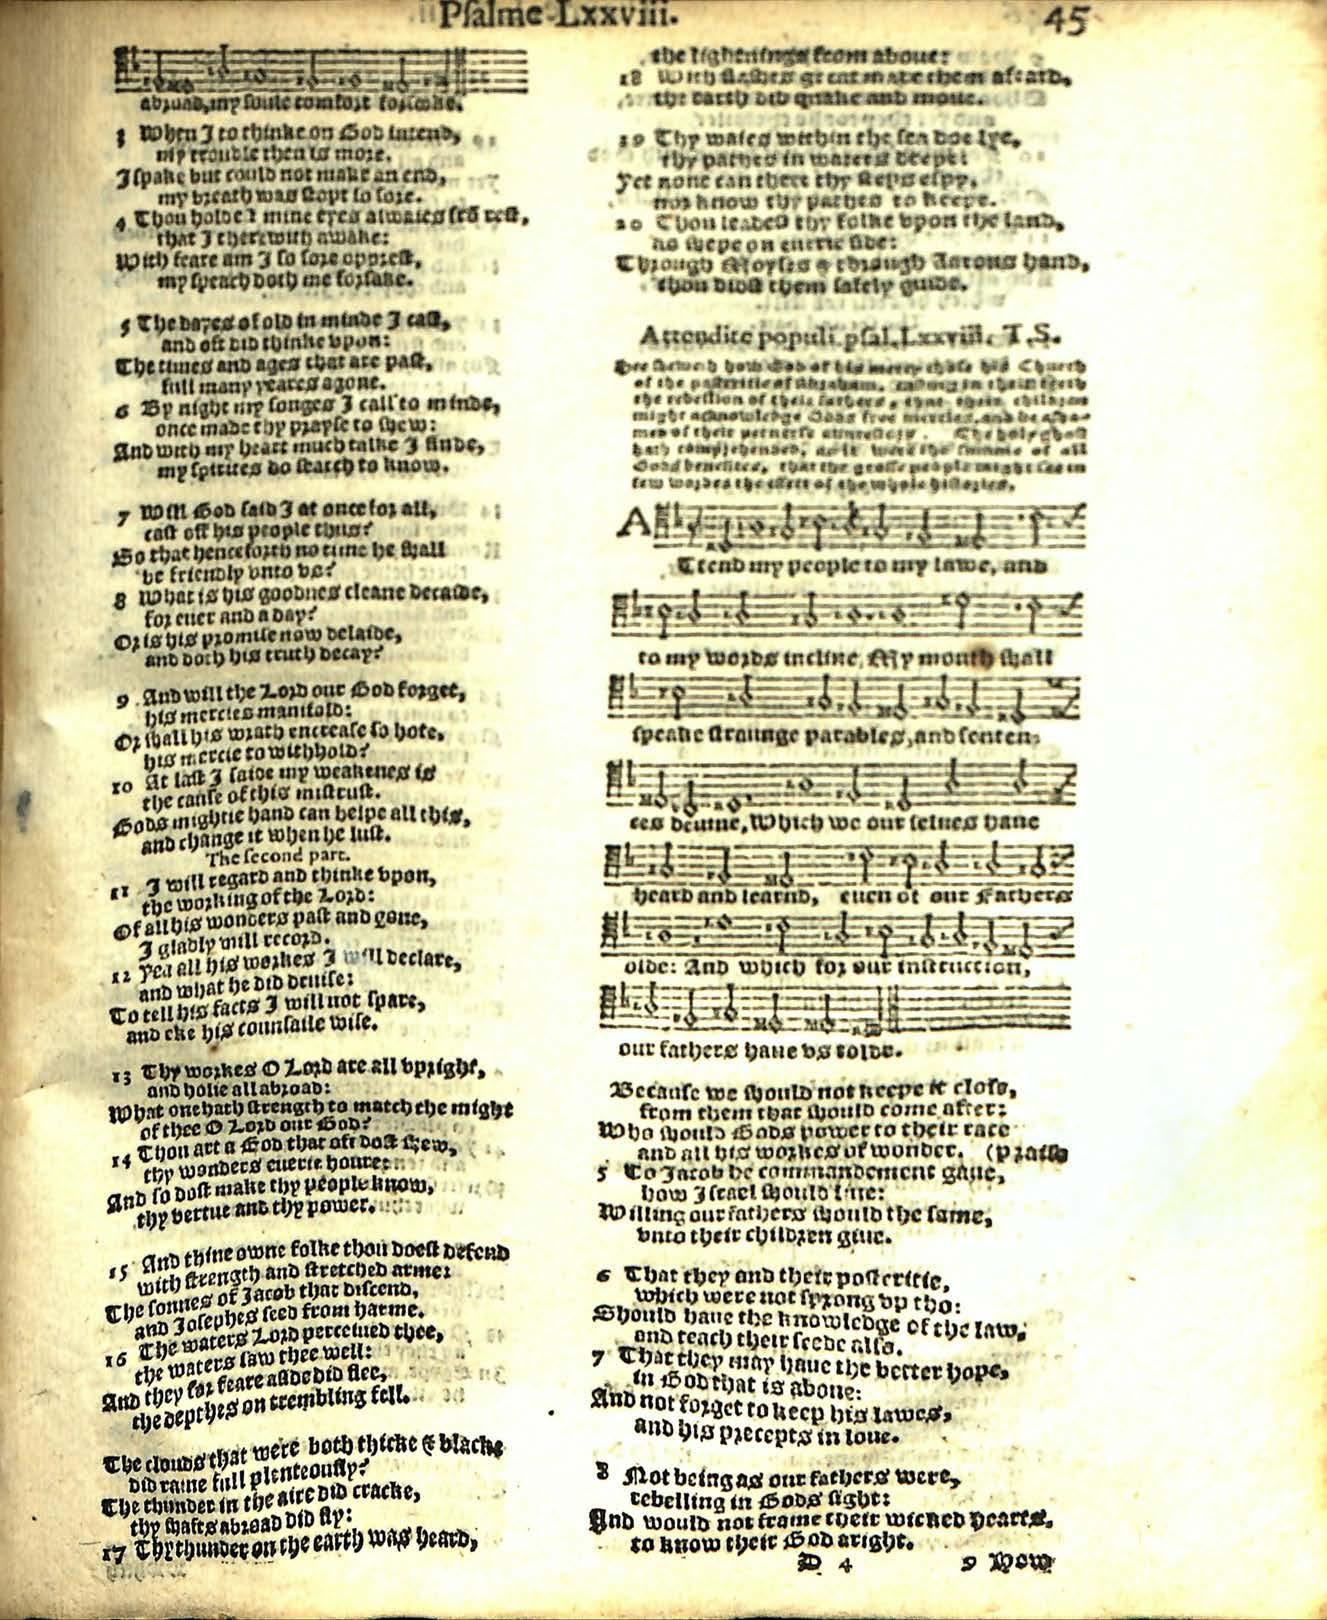 Pſalme Lxxviii.
45
abroad, my ſoule comfort forſooke.
3 When I to thinke on God intend,
my trouble then is more.
I ſpake but could not make an end,
my breath was ſtopt ſo ſore.
4 Thou holdeſt mine eyes alwaies frõ reſt,
that I therewith awake:
With feare am I ſo ſore oppreſt,
my ſpeach doth me forſake.
5 The dayes of old in minde I caſt,
and oft did thinke vpon:
The times and ages that are paſt,
full many yeares agone.
6 By night my ſonges I call to minde,
once made thy prayſe to ſhew:
And with my heart much talke I finde,
my ſpirites do ſearch to know.
7 Will God ſaid I at once for all,
caſt off his people thus?
So that henceforth no time he ſhall
be friendly vnto vs?
8 What is his goodnes cleane decaide,
for euer and a day?
Or is his promiſe now delaide,
and doth his truth decay?
9 And will the Lord our God forget,
his mercies manifold:
Or ſhall his wrath encreaſe ſo hote,
his mercie to withhold?
10 At laſt I ſaide my weakenes is
the cauſe of this miſtruſt.
Gods mightie hand can helpe all this,
and change it when he luſt.
The ſecond part.
11 I will regard and thinke vpon,
the working of the Lord:
Of all his wonders paſt and gone,
I gladly will record.
12 Yea all his workes I will declare,
and what he did deuiſe:
To tell his facts I will not ſpare,
and eke his counſaile wiſe.
13 Thy workes O Lord are all vpright,
and holie all abroad:
What one hath ſtrength to match the might
of thee O Lord our God?
14 Thou art a God that oft doſt ſhew,
thy wonders euerie houre:
And ſo doſt make thy people know,
thy vertue and thy power.
15 And thine owne folke thou doeſt defend
with ſtrength and ſtretched arme:
The ſonnes of Jacob that diſcend,
and Joſephes ſeed from harme.
16 The waters Lord perceiued thee,
the waters ſaw thee well:
And they for feare aſide did flee,
the depthes on trembling fell.
The clouds that were both thicke & blacke
did raine full plenteouſly?
The thunder in the aire did cracke,
thy ſhafts abroad did fly:
17 Thy thunder on the earth was heard,
the lightenings from aboue:
18 With flaſhes great made them afeard,
the earth did quake and moue.
19 Thy waies within the ſea doe lye,
thy pathes in waters deepe:
Yet none can there thy ſteps eſpy,
nor know thy pathes to keepe.
20 Thou leadeſt thy folke vpon the land,
as ſhepe on euerie ſide:
Through Moyſes & through Aarons hand,
thou didſt them ſafely guide.
Attendite populi. pſal. Lxxviii. T.S.
Hee ſheweth how God of his mercy choſe his Church
of the poſteritie of Abraham, caſting in their teeth
the rebellion of their fathers, that their children
might acknowledge Gods free mercies, and be aſha-
med of their peruerſe aunceſters. The holy ghoſt
hath comprehended, as it were the ſumme of all
Gods benefites, that the groſſe people might ſee in
few wordes the effect of the whole hiſtories.
ATtend my people to my lawe, and
to my words incline, My mouth ſhall
ſpeake ſtraunge parables, and ſenten-
ces deuine, Which we our ſelues haue
heard and learnd, euen of our Fathers
olde: And which for our inſtruction,
our fathers haue vs tolde.
Becauſe we ſhould not keepe it cloſe,
from them that ſhould come after:
Who ſhould Gods power to their race
and all his workes of wonder. (praiſe
5 To Jacob he commandement gaue,
how Iſrael ſhould liue:
Willing our fathers ſhould the ſame,
vnto their children giue.
6 That they and their poſteritie,
which were not ſprong vp tho:
Should haue the knowledge of the law,
and teach their ſeede alſo.
7 That they may haue the better hope,
in God that is aboue:
And not forget to keep his lawes,
and his precepts in loue.
8 Not being as our fathers were,
rebelling in Gods ſight:
And would not frame their wicked hearts,
to know their God aright.
D 4
9 How